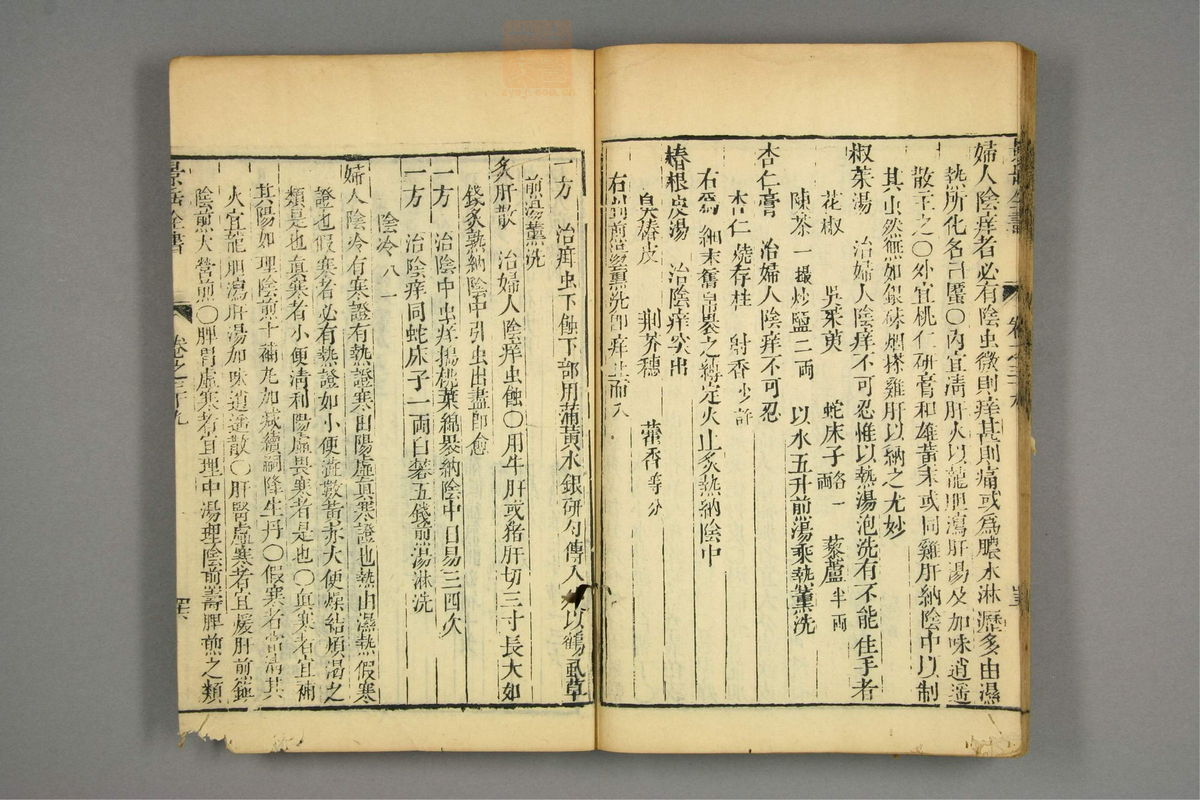 婦人陰痒者必有陰虫微則痒甚則痛或爲膿水淋瀝多由濕
熱所化名曰䘌〇內宜清肝火以龍胆瀉肝湯及加味逍遥
散主之〇外宜桃仁研膏和雄黃末或同雞肝納陰中以制
其虫然無如銀硃烟搽雞肝以納之尤妙
椒茱湯 治婦人陰痒不可忍惟以熱湯泡洗有不能住手者
花椒 吳茱萸 蛇床子各一兩 藜蘆半両
陳茶一撮炒鹽二両 以水五升煎湯乘熱薰洗
杏仁膏 治婦人陰痒不可忍
杏仁燒存性 麝香少許
右爲細末舊帛裹之縛定火上炙熱納陰中
椿根皮湯 治陰痒突出
臭椿皮 荆芥穗 藿香等分
右剉煎湯熏洗卽痒止而入
一方 治疳虫下蝕下部用蒲黃水銀研勻傅入 以鶴虱草
煎湯薰洗
炙肝散 治婦人陰痒虫蝕〇用牛肝或猪肝切三寸長大如
錢炙熱納陰中引虫出盡卽愈
一方 治陰中虫痒搗桃葉綿裹納陰中日易三四次
一方 治陰痒同蛇床子一両白礬五錢煎湯淋洗
陰冷八一
婦人陰冷有寒證有熱證寒由陽虛眞寒證也熱由濕熱假寒
證也假寒者必有熱證如小便澁數黃赤大便燥結煩渴之
類是也眞寒者小便清利陽虛畏寒者是也〇眞寒者宜補
其陽如理陰煎十補丸加減續嗣降生丹〇假寒者當清其
火宜龍胆瀉肝湯加味逍遥散〇肝腎虛寒者宜煖肝煎鎮
陰煎大營煎〇脾胃虛寒者宜理中湯理陰煎壽脾煎之類
景岳全書 卷之三十九